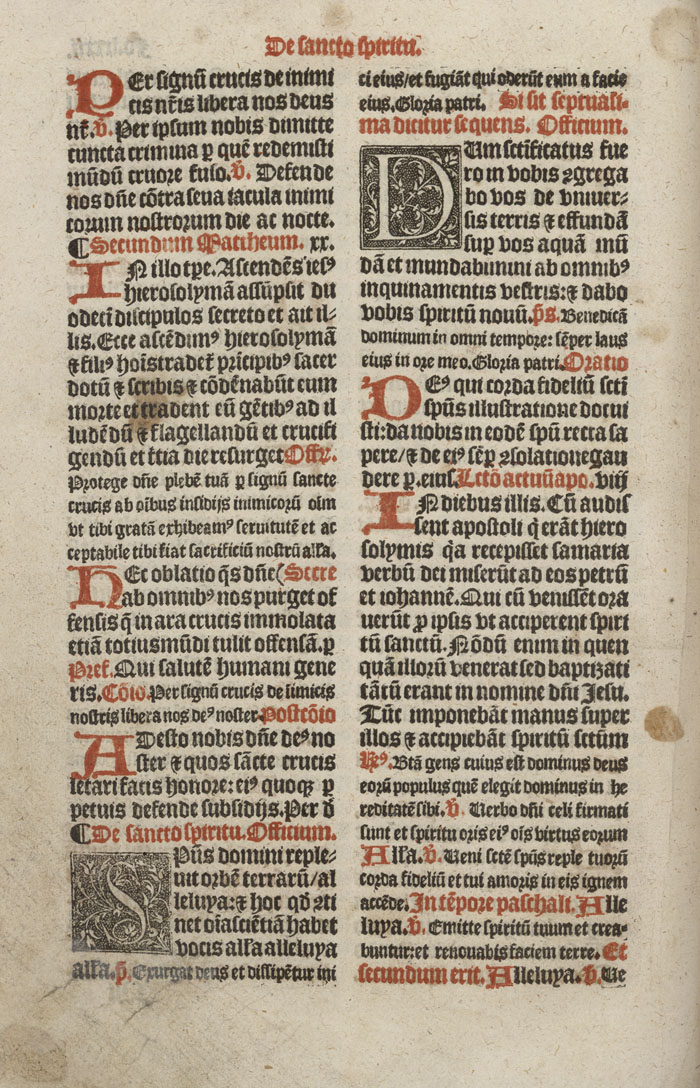 De sancto spiritu.
PEr signũ crucis de inimi
cis nr̃is libera nos deus
nr̃. ℣. Per ipsum nobis dimitte
cuncta crimina ꝑ quẽ redemisti
mũdũ cruore fuso. ℣. Defende
nos dñe cõtra seua iacula inimi
corum nostrorum die ac nocte.
¶ Secundum Mattheum. xx.
IN illo tꝑe. Ascendẽs iesꝰ
hierosolymã assũpsit du
odecĩ discipulos secreto et ait il-
lis. Ecce ascẽdimꝰ hierosolymã
⁊ filiꝰ hoĩs tradet̃ prĩcipibꝰ sacer
dotũ ⁊ scribis ⁊ cõdẽnabũt eum
morte et tradent eũ gẽtibꝰ ad il
ludẽdũ ⁊ flagellandũ et crucifi
gendũ et t̃tia die resurget Offr̃.
Protege dñe plebẽ tuã ꝑ signũ sancte
crucis ab oĩbus insidijs inimicorũ oĩm
vt tibi gratã exhibeamꝰ seruitutẽ et ac
ceptabile tibi fiat sacrificiũ nostrũ alĺa.
HEc oblatio q̃s dñe (Secre
ab omnibꝰ nos purget of
fensis q̃ in ara crucis immolata
etiã totius mũdi tulit offensã. ꝑ
Pref. Qui salutẽ humani gene
ris. Cõio. Per signũ crucis de iimicis
nostris libera nos deꝰ noster. Postcõio
ADesto nobis dñe deꝰ no
ster ⁊ quos sãcte crucis
letari facis honore: eiꝰ quoqꝫ ꝑ
petuis defende subsidijs. Per d̃
¶ De sancto spiritu. Officium.
SPũs domini reple-
uit orbẽ terrarũ/al
leluya: ⁊ hoc qd̓ ↄti
net oĩa sciẽtiã habet
vocis alĺa alleluya
alĺa. p̃. Exurgat deus et dissipẽtur ini
ci eius/et fugiãt qui oderũt eum a facie
eius. Gloria patri. Si sit septuasi-
ma dicitur sequens. Officium.
DUm sctĩficatus fue
ro in vobis ↄgrega
bo vos de vniuer-
sis terris ⁊ effundã
suꝑ vos aquã mũ
dã et mundabimini ab omnibꝰ
inquinamentis vestris: ⁊ dabo
vobis spiritũ nouũ. p̃s. Benedicã
dominum in omni tempore: sẽper laus
eius in ore meo. Gloria patri. Oratio
DEꝰ qui corda fideliũ sctĩ
spũs illustratione docui
sti: da nobis in eodẽ spũ recta sa
pere/⁊ de eiꝰ sẽꝑ ↄsolatione gau
dere ꝑ. eius Lctõ actuũ apo. viij
IN diebus illis. Cũ audis
sent apostoli q̃ erãt hiero
solymis q̃a recepisset samaria
verbũ dei miserũt ad eos petrũ
et iohannẽ. Qui cũ venissẽt ora
uerũt ꝓ ipsis vt acciperent spiri
tũ sanctũ. Nõdũ enim in quen
quã illorũ venerat sed baptizati
tãtũ erant in nomine dñi Jesu.
Tũc imponebãt manus super
illos ⁊ accipiebãt spiritũ sctũm
℟ꝰ. Btã gens cuius est dominus deus
eorũ populus quẽ elegit dominus in he
reditatẽ sibi. ℣. Verbo dñi celi firmati
sunt et spiritu oris eiꝰ oĩs virtus eorum
Alĺa. ℣. Veni sctẽ spũs reple tuorũ
corda fideliũ et tui amoris in eis ignem
accẽde. In tẽpore paschali. Alle
luya. ℣. Emitte spiritũ tuum et crea-
buntur: et renouabis faciem terre. Et
secundum erit. Alleluya. ℣. Ue